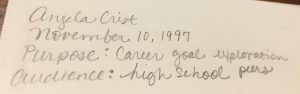 Angela Crist
November 10, 1997
Purpose: Career goal exploration
Audience: high school peers